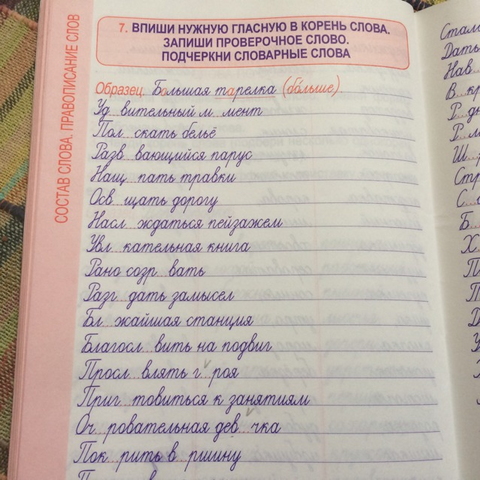 7. ВПИШИ НУЖНУЮ ГЛАСНУЮ В КОРЕНЬ СЛОВА.
ЗАПИШИ ПРОВЕРОЧНОЕ СЛОВО.
ПОДЧЕРКНИ СЛОВАРНЫЕ СЛОВА
СОСТАВ СЛОВА. ПРАВОПИСАНИЕ СЛОВ
Образец. Большая тарелка (больше).
Уд...вительный м...мент
Пол...скать бельё
Разв...вающийся парус
Нащ...пать травки
Осв...щать дорогу
Насл...ждаться пейзажем
Увл...кательная книга
Рано созр...вать
Разг...дать замысел
Бл...жайшая станция
Благосл...вить на подвиг
Просл...влять г...роя
Приг...товиться к занятиям
Оч...ровательная дев...чка
Пок...рить в...ршину
Стал
Дать
Нав
В кр
Р...д
Р...м
Ш...р
Стр
С...
Б...
Х
П